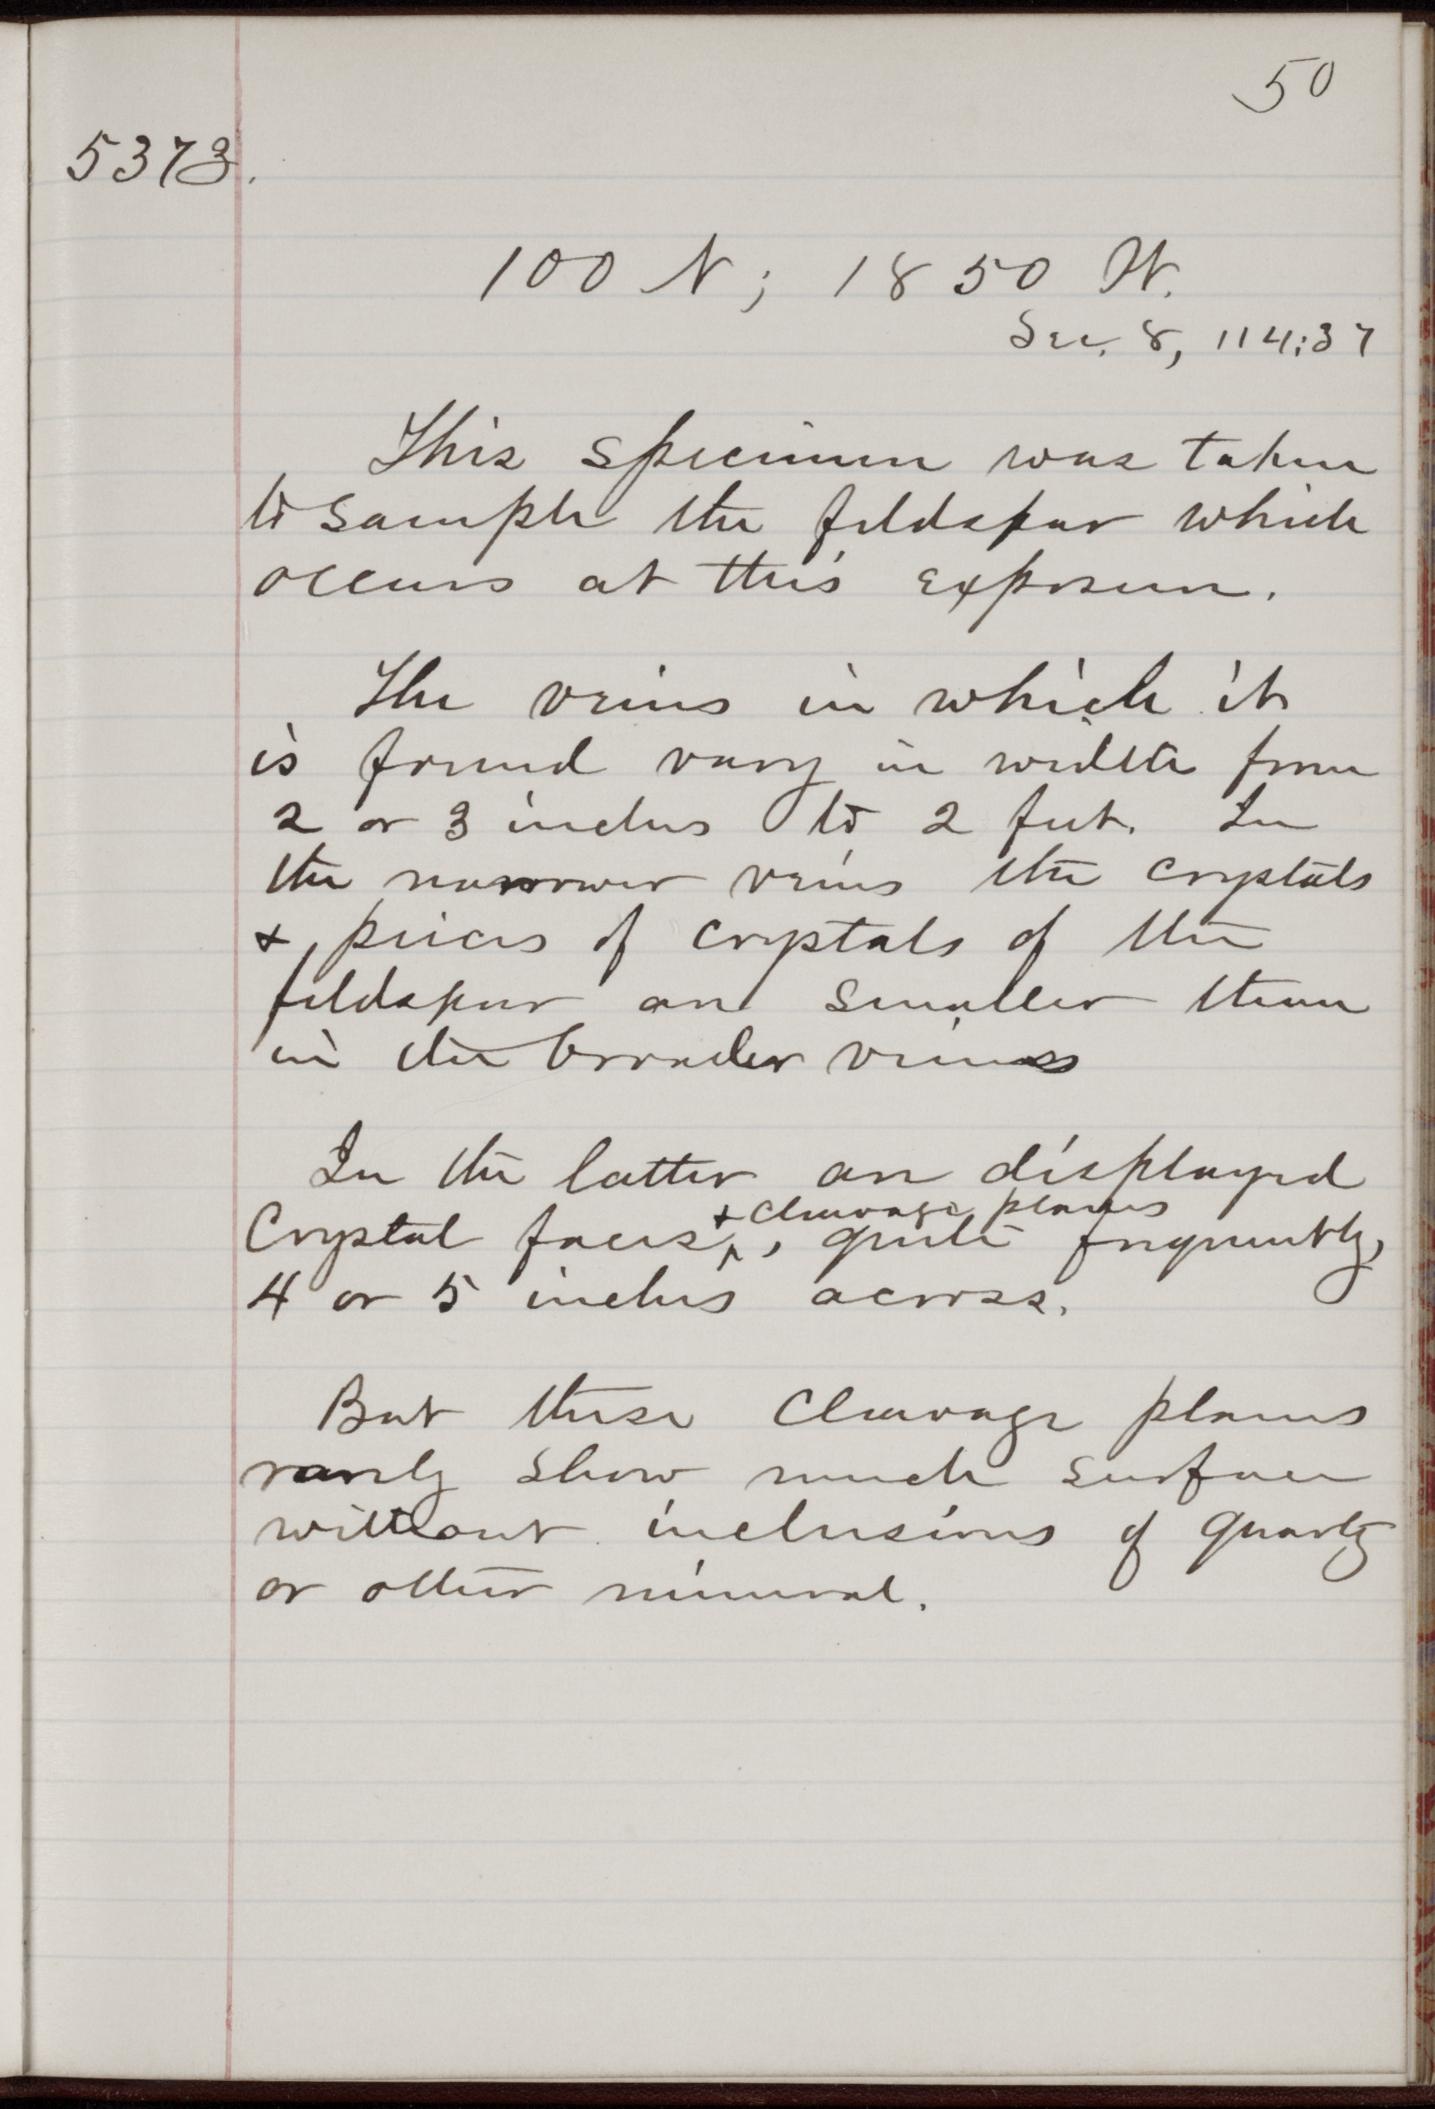 50
5373.
100 N; 1850 W.
Sec. 8, 114:37
This specimen was taken
to sample the feldspar which
occurs at this exposure.
The veins in which it
is found vary in width from
2 or 3 inches to 2 feet. In
the narrower veins the crystals
+ pieces of crystals of the
feldspar are smaller than
in the broader veins
In the latter are displayed
+ cleavage planes
Crystal faces^, quite frequently,
4 or 5 inches across.
But these cleavage planes
rarely show much surface
without inclusions of quartz
or other mineral.